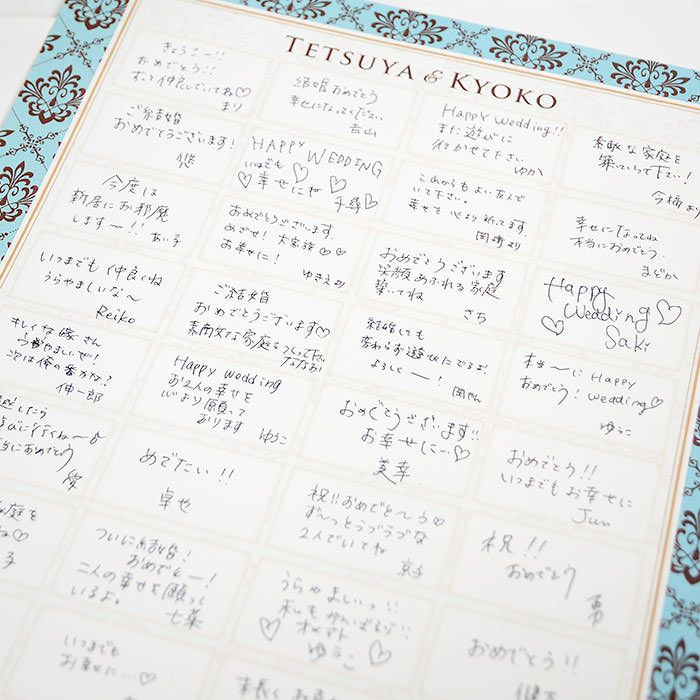 TETSUYA & KYOKO
きょうこー!!
おめでとう!!
ずっと仲良しでいてね♡
まり
結婚おめでとう
幸せになってください
吉山
Happy Wedding!!
また遊びに
行かせて下さい
ゆか
素敵な家庭を
築いていって下さい!
今橋
ご結婚
おめでとうございます!
悠
HAPPY WEDDING
いつまでも
♡幸せにね♡
千尋♡
これからもよい友人で
いて下さい。
幸せを心より祈ってます。
岡崎より
幸せになってね
本当におめでとう。
まどか
今度は
新居にお邪魔
しまーす!! あい子
おめでとうございます
めざせ!大家族♡♡
お幸せに!
ゆきえより
おめでとうございます
笑顔あふれる家庭
築いてね
さち
Happy
Wedding
Saki
いつまでも仲良くね
うらやましいな〜
Reiko
ご結婚
おめでとうございます♡
素敵な家庭をつくって下さい
ななお
結婚しても
変わらずお遊びにでるよ!
よろしくー! 岡やん
本当〜にHappy
おめでとう!wedding♡
ゆうこ
キレイな嫁さん
うらやましいぜ!
次は俺の番かな?
伸一郎
Happy wedding
お2人の幸せを
心より願って
おります
ゆうこ
おめでとうございます!!
お幸せに…♡
美幸
おめでとう!!
いつまでもお幸せに
Jun
したら
びに行くね〜♪
当におめでとう
愛
めでたい!!
卓也
祝!!おめでと〜う♡
ず〜っとラブラブな
2人でいてね
京子
祝!!
おめでとう
勇
庭を
子
ついに結婚!
おめでとー!
二人の幸せを願って
いるよ。
七菜
うらやましいっ!!
私もがんばるぞ!!
オメデト
♡ゆうこ♡
おめでとう!!
いつまでも
お幸せに…♡
末長くお